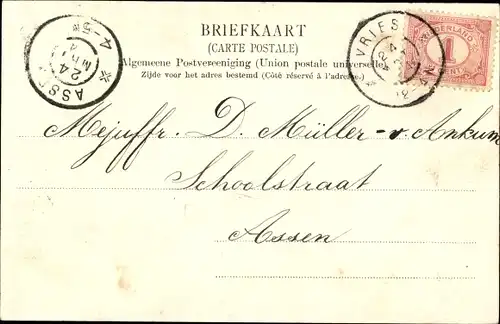 BRIEFKAART
(CARTE POSTALE)
Algemeene Postvereeniging (Union postale universelle)
Zijde voor het adres bestemd (Côté réservé à l'adresse.)
VRIES
ASS
24
4-5
NEDERLAND
1
CENT
Mejuffr. D. Müller-v. Ankum
Schoolstraat
Assen